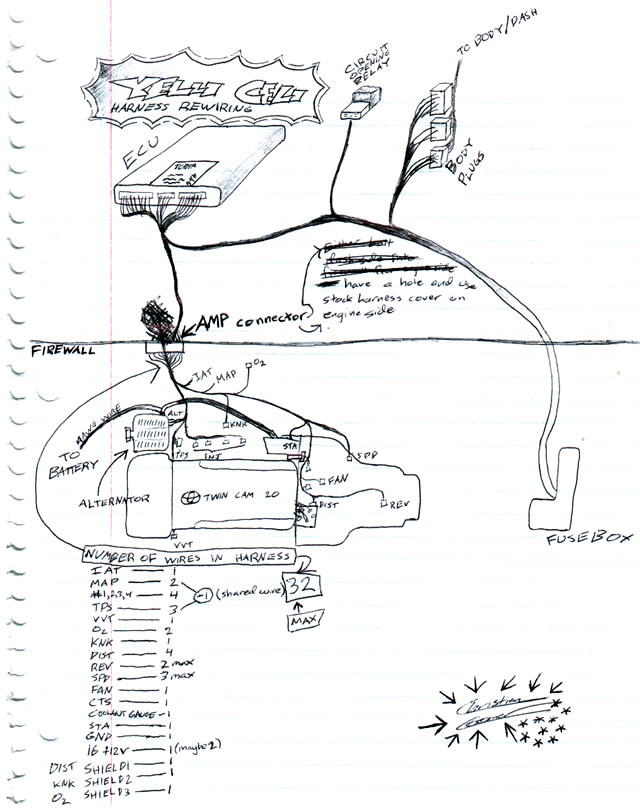 CIRCUIT
OPENING
RELAY
TO BODY/DASH
HARNESS REWIRING
ECU
BODY
PLUGS
have a hole and use
stock harness cover on
engine side
AMP connector
FIREWALL
IAT
MAP
O2
ALT
KNK
MAIN WIRE
TO
BATTERY
TPS
INJ
STA
SPD
FAN
ALTERNATOR
TWIN CAM 20
DIST
REV
VVT
FUSEBOX
NUMBER OF WIRES IN HARNESS
IAT 1
MAP 2
#1,2,3,4 4
TPS 3
-1 (shared wire)
32
MAX
VVT 1
O2 2
KNK 1
DIST 4
REV 2 max
SPD 3 max
FAN 1
CTS 1
COOLANT GAUGE - 1
STA 1
GND 1
IG +12V 1 (maybe 2)
DIST SHIELD1 1
KNK SHIELD2 1
O2 SHIELD3 1
Christian